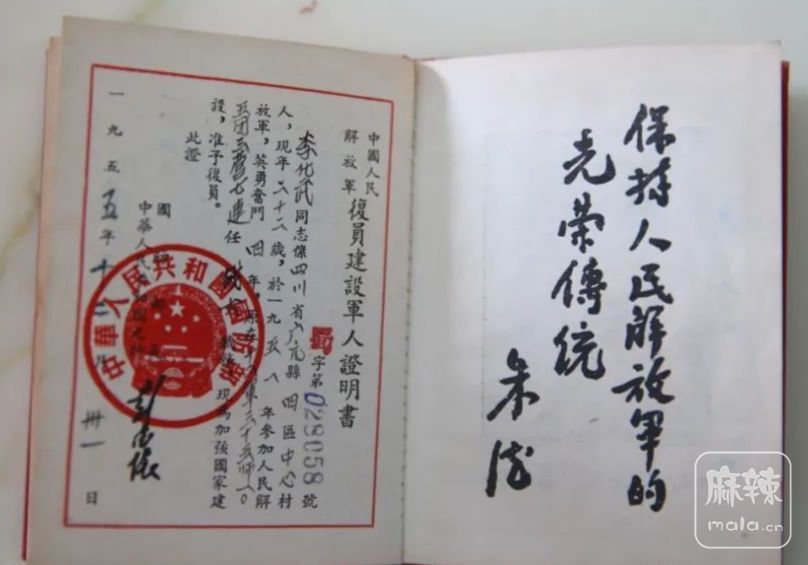 中國人民
解放軍
復員建設軍人證明書
蜀字第029058號
李化武同志係四川省广元縣四區中心村
人，現年二十二歲，於一九五 年參加人民解
放軍，英勇奮鬥四年，
五團 營七連任 現為加強國家建
設，准予復員。
此證
國
中華人民共和國
彭德懷
一九五五年十 月卅一日
中華人民共和國國防部
保持人民解放军的
光荣傳统
朱德
麻辣
mala.cn